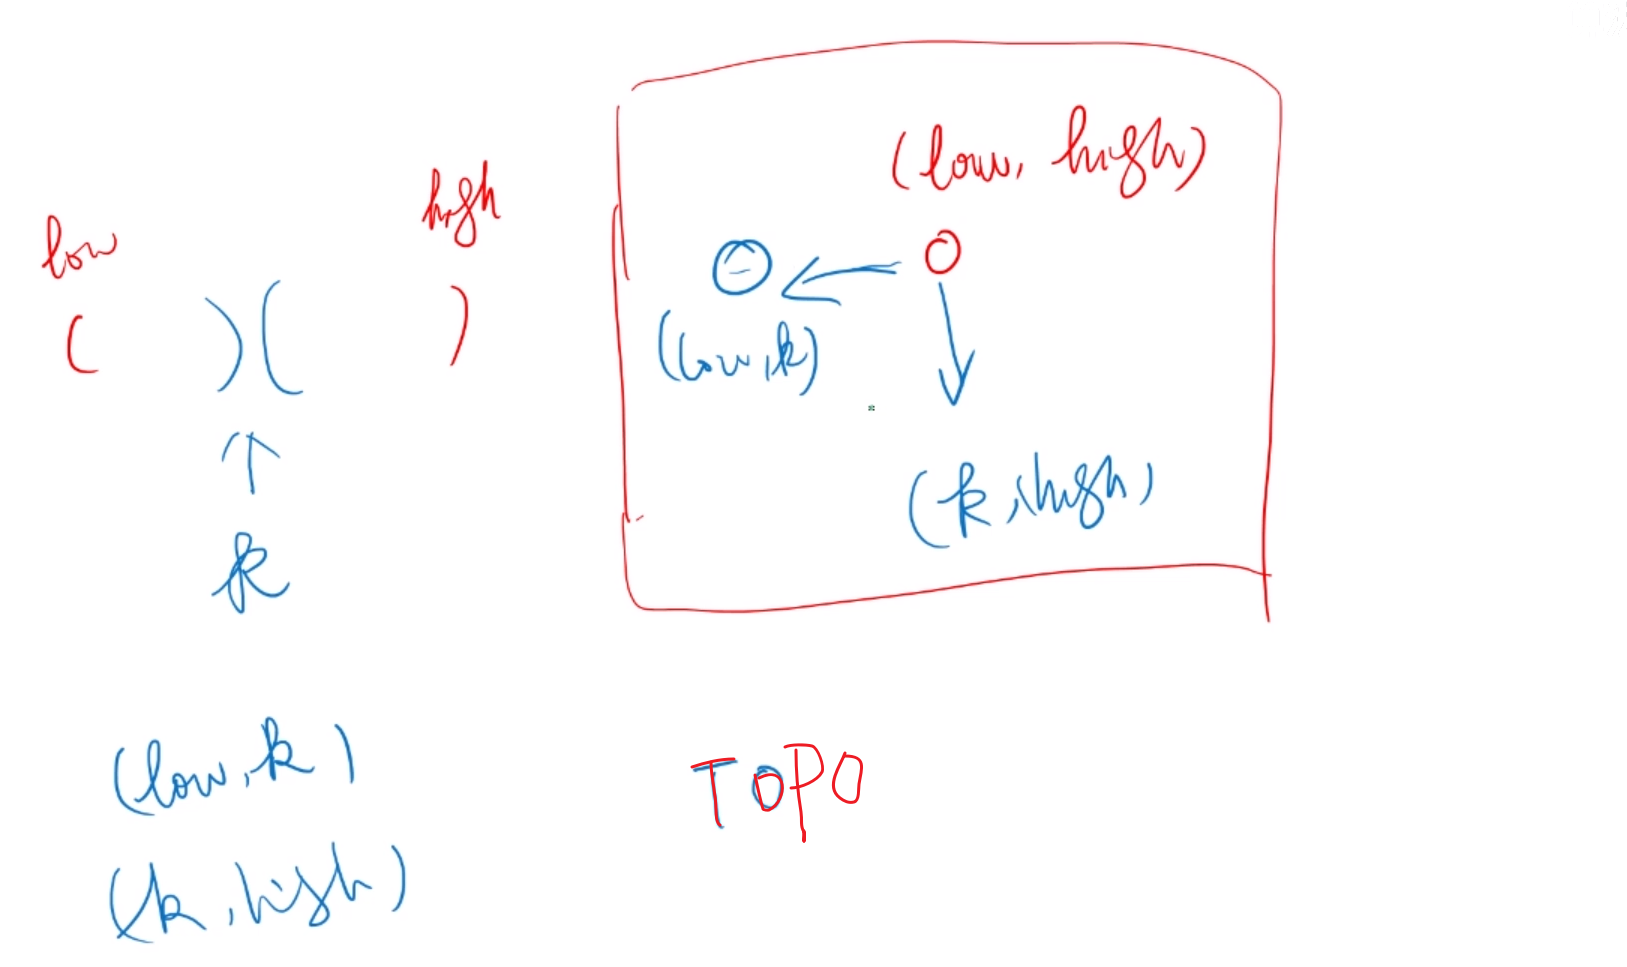 low high
( )( )
k
(low, k)
(k, high)
(low, high)
(low, k)
(k, high)
TOPO